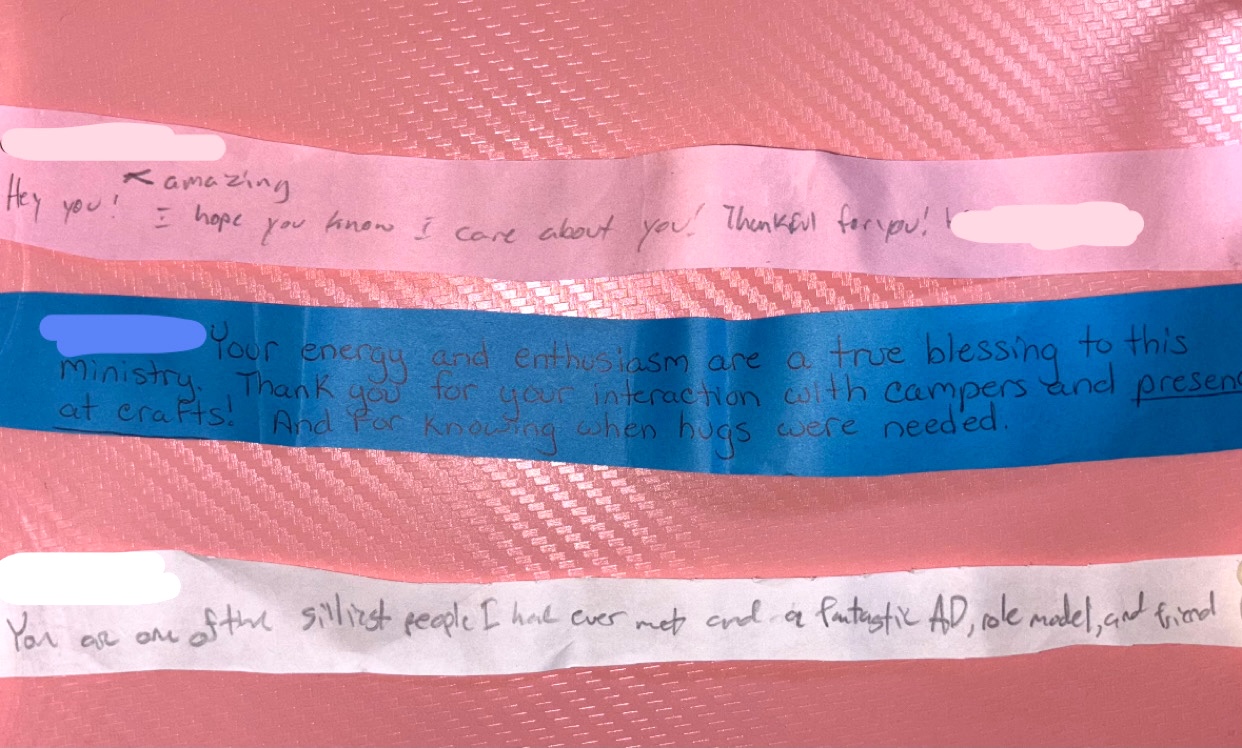 < amazing
Hey you! I hope you know I care about you! Thankful for you!
Your energy and enthusiasm are a true blessing to this
ministry. Thank you for your interaction with campers and
at crafts! And for knowing when hugs were needed.
You are one of the silliest people I have ever met and a fantastic AD, role model, and friend